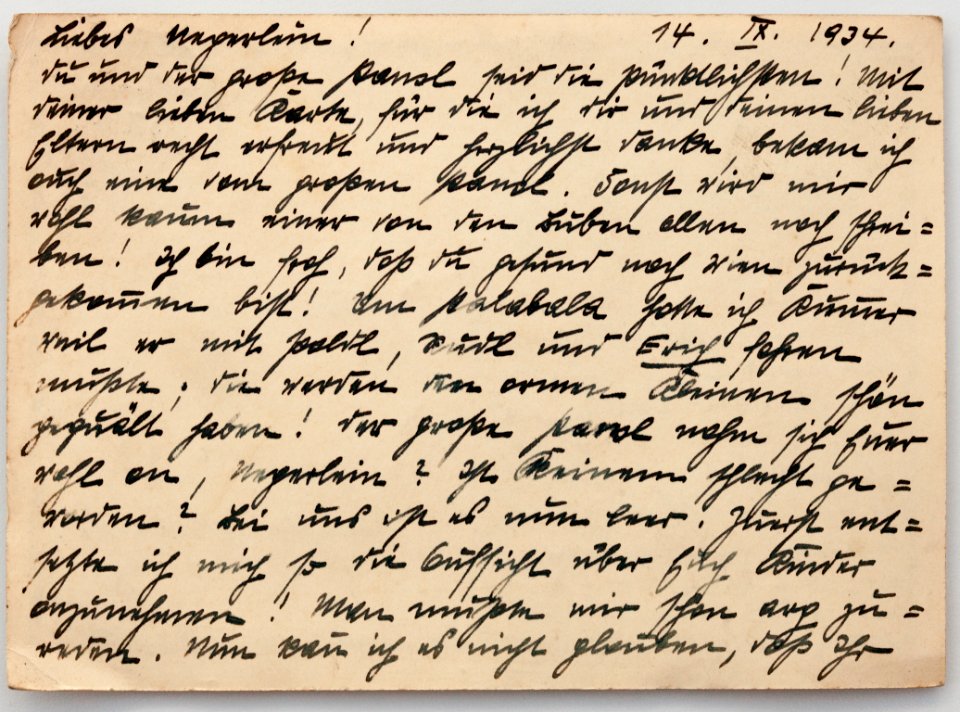 Liebes Negerlein! 14. IX. 1934.
Du und der große Hansl seid die pünktlichsten! Mit
deiner lieben Karte, für die ich dir und deinen lieben
Eltern recht erfreut und herzlichst danke, bekam ich
auch eine vom großen Hansl. Sonst wird mir
wohl kaum einer von den Buben allen noch schrei=
ben! Ich bin froh, daß du gesund nach Wien zurück=
gekommen bist! Um hatte ich Kummer
weil er mit Poldl, Rudl und Erich fahren
mußte; die werden den armen Kleinen schön
gequält haben! Der große Hansl nahm sich Euer
wohl an, Negerlein? Ist Keinem schlecht ge=
worden? Bei uns ist es nun leer. Zuerst ent=
setzte ich mich so die Aufsicht über Euch Kinder
anzunehmen! Man mußte mir schon arg zu=
reden. Nun kann ich es nicht glauben, daß Ihr